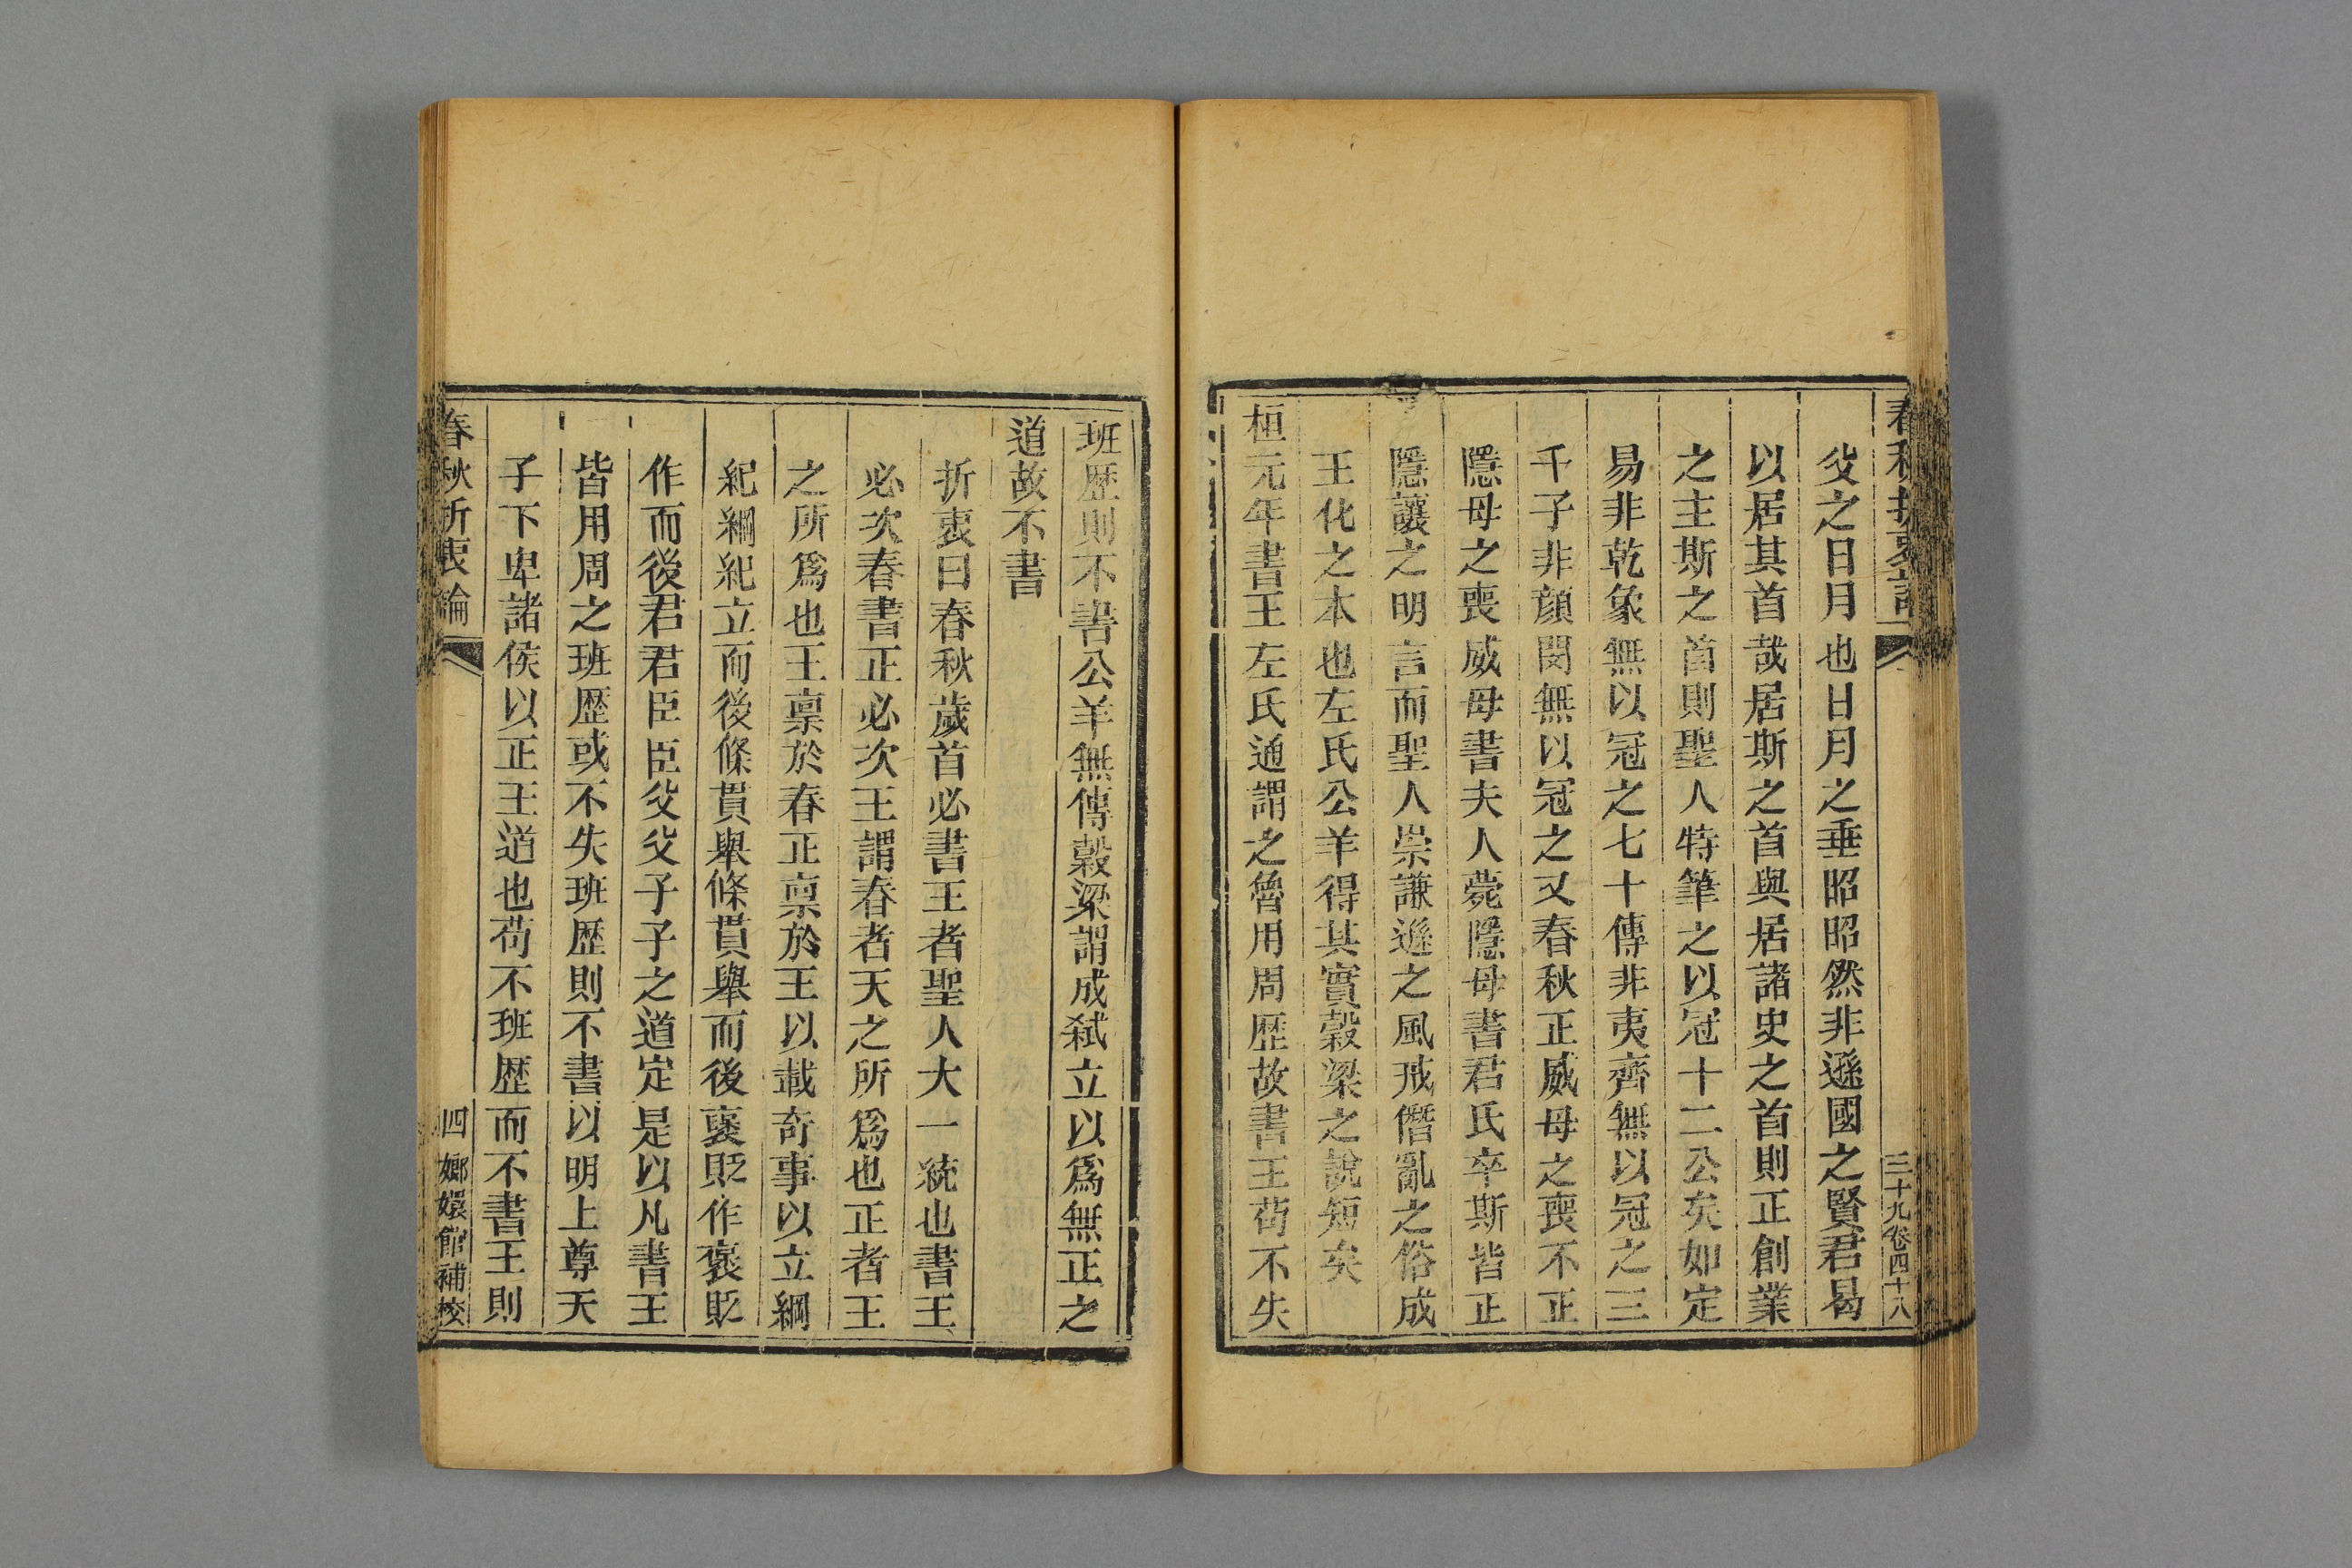 春秋折衷論
三十九卷四十八
父之日月也日月之垂昭昭然非遜國之賢君曷
以居其首哉居斯之首與居諸史之首則正創業
之主斯之首則聖人特筆之以冠十二公矣如定
易非乾象無以冠之七十傳非夷齊無以冠之三
千子非顏閔無以冠之又春秋正威母之喪不正
隱母之喪威母書夫人薨隱母書君氏卒斯皆正
隱讓之明言而聖人崇謙遜之風戒僭亂之俗成
王化之本也左氏公羊得其實穀梁之說短矣
桓元年書王左氏通謂之魯用周歷故書王苟不失
班歷則不書公羊無傳穀梁謂成弑立以爲無正之
道故不書
折衷曰春秋歲首必書王者聖人大一統也書王
必次春書正必次王謂春者天之所爲也正者王
之所爲也王禀於春正禀於王以載奇事以立綱
紀綱紀立而後條貫舉條貫舉而後襃貶作褒貶
作而後君君臣臣父父子子之道定是以凡書王
皆用周之班歷或不失班歷則不書以明上尊天
子下卑諸侯以正王道也苟不班歷而不書王則
春秋折衷論
四 嫏嬛館補校